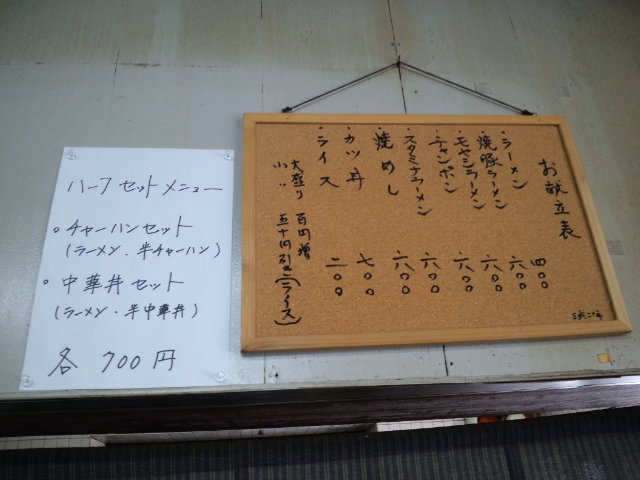 ハーフセットメニュー
○チャーハンセット
(ラーメン・半チャーハン)
○中華丼セット
(ラーメン・半中華丼)
各 700円
お献立表
・ラーメン 四〇〇
・焼豚ラーメン 六〇〇
・モヤシラーメン 六〇〇
・チャンポン 六〇〇
・スタミナラーメン 六〇〇
・焼めし 六〇〇
・カツ丼 七〇〇
・ライス 二〇〇
大盛り 百円増
小〃 五十円引き(ライス)